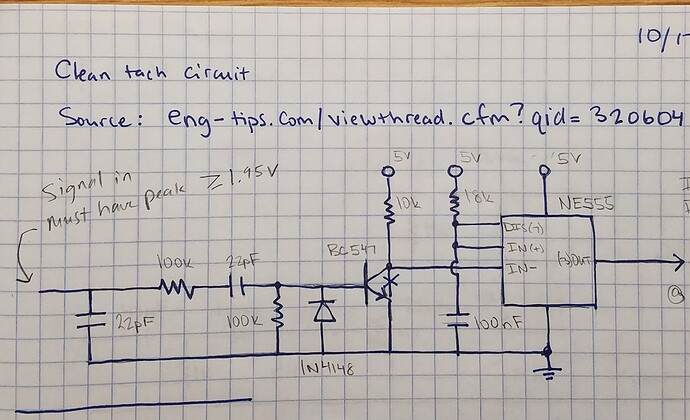 10/1
Clean tach circuit
Source: eng-tips.com/viewthread.cfm?qid=320604
Signal in
must have peak ≥1.95V
5V
5V
5V
10k
18k
NE555
DIS(7)
IN(+)
IN-
OUT
BC547
100k
22pF
22pF
100k
100nF
1N4148